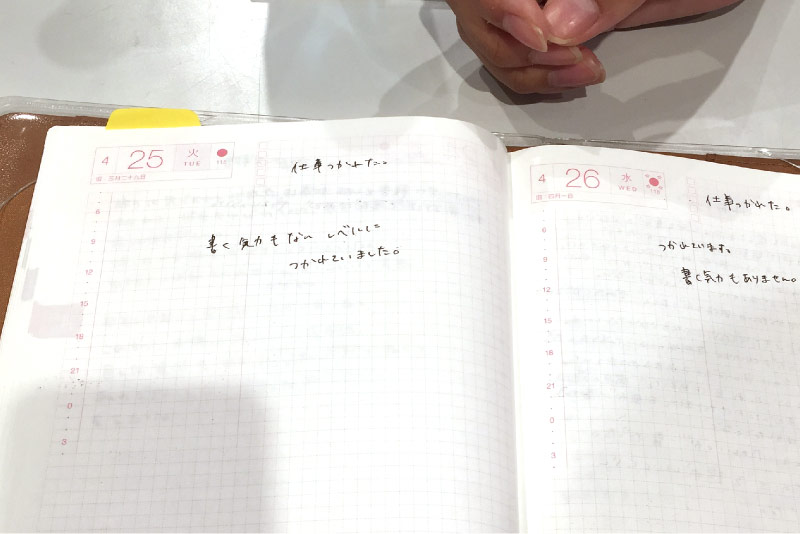 4 25 火 TUE
旧 三月二十九日
仕事つかれた。
書く気力もないレベルに
つかれていました。
6
9
12
15
18
21
0
3
4 26 水 WED
旧 四月一日
仕事つかれた。
つかれています。
書く気力もありません。
6
9
12
15
18
21
0
3